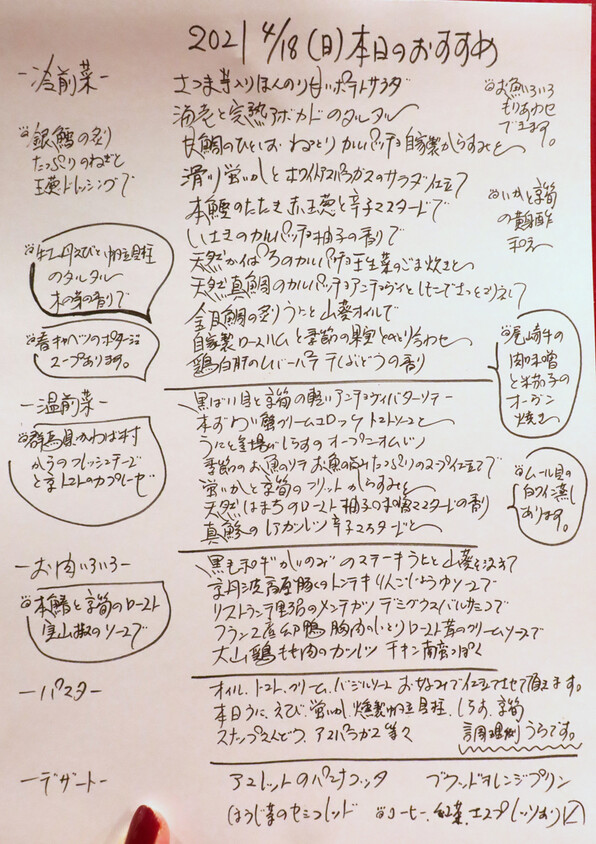 2021 4/18(日)本日のおすすめ
-冷前菜-
さつま芋入りほんのり甘いポテトサラダ
海老と完熟アボカドのタルタル
甘鯛のひとしお ねっとりカルパッチョ自家製からすみと
滑り蛍いかとホワイトアスパラガスのサラダ仕立て
本鰹のたたき赤玉葱と辛子マスタードで
いさきのカルパッチョ柚子の香りで
天然かんぱちのカルパッチョ壬生菜のごま焼きと
天然真鯛のカルパッチョアンチョヴィと
金目鯛の炙りうにと山葵オイルで
自家製ロースハムと季節の果実とのとり合わせ
鶏白肝のレバーパテ干しぶどうの香り
お魚いろいろ
もりあわせ
できます。
銀鱈の炙り
たっぷりのねぎと
玉葱ドレッシングで
いかと京筍
の黄身酢
和え
牡丹えびと帆立貝柱
のタルタル
木の芽の香りで
春キャベツのポタージュ
スープあります。
尾崎牛の
肉味噌
と茄子の
オーブン
焼き
-温前菜-
黒ばい貝と京筍の軽いアンチョヴィバターソテー
本ずわい蟹クリームコロッケ トマトソースと
うにと釜揚げしらすのオープンオムレツ
季節のお魚のソテ お魚の旨みたっぷりのスープ仕立てで
蛍いかと京筍のフリット からすみと
天然はまちのロースト 柚子味噌マスタードの香り
真鯵のレアカツレツ 辛子マスタードと
群馬県かわば村
からのフレッシュチーズ
と京トマトのカプレーゼ
ムール貝の
白ワイン蒸し
あります。
-お肉いろいろ-
黒毛和牛"かいのみ"のステーキ うにと山葵を添えて
京丹波高原豚のトンテキ りんごじょうゆソースで
リストランテ野呂のメンチカツ デミグラスバルサミコで
フランス産 鴨 胸肉のしっとりロースト 苔のクリームソースで
大山鶏もも肉のカツレツ チキン南蛮っぽく
本鰆と京筍のロースト
実山椒のソースで
-パスタ-
オイル、トマト、クリーム、バジルソース お好みで仕立てさせて頂きます。
本日うに、えび、蛍いか、燻製帆立貝柱、しらす、京筍
スナップえんどう、アスパラガス等々
調理例 うらです。
-デザート-
アメレットのパンナコッタ ブラッドオレンジプリン
ほうじ茶のセミフレッド コーヒー、紅茶、エスプレッソあります